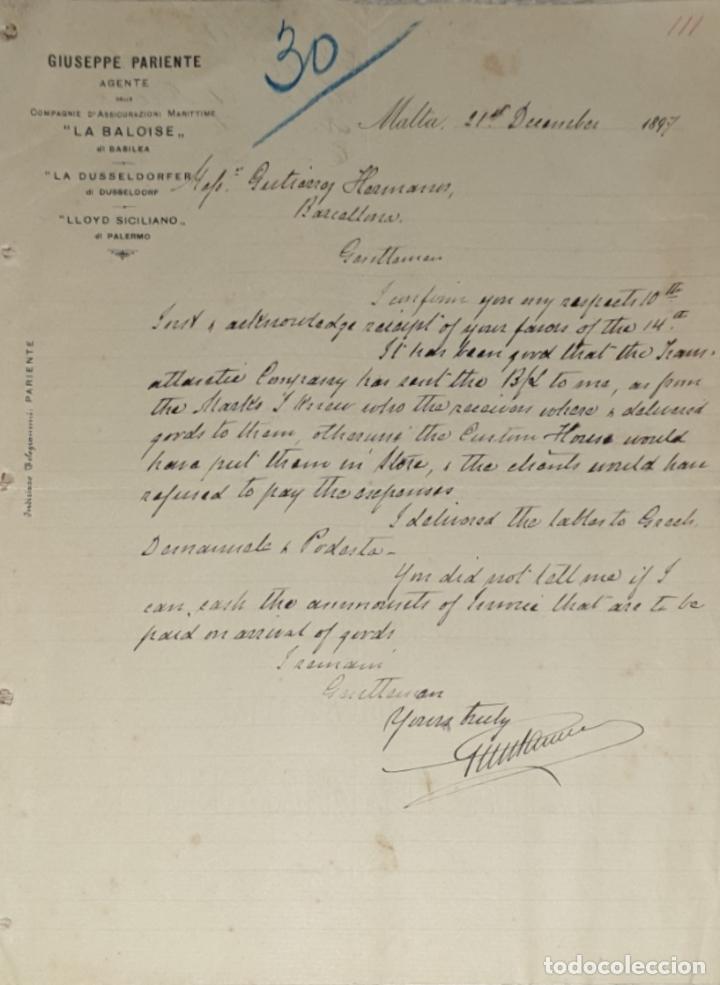 30
111
GIUSEPPE PARIENTE
AGENTE
DELLE
COMPAGNIE D'ASSICURAZIONI MARITTIME
"LA BALOISE„
di BASILEA
"LA DUSSELDORFER„
di DUSSELDORF
"LLOYD SICILIANO„
di PALERMO
Indirizzo Telegrammi: PARIENTE
Malta, 21st December 1897
Messrs Gutierrez Hermanos,
Barcellona.
Gentlemen
I confirm you my respects 10th
Inst & acknowledge receipt of your favors of the 14th
It has been good that the Trans-
atlantic Company has sent the B/L to me, as from
the Marks I knew who the receivers where & delivered
goods to them, otherwise the Custom House would
have put them in Store, & the clients would have
refused to pay the expenses
I delivered the lables to Grech
Demanuele & Podesta -
You did not tell me if I
can cash the ammounts of Invoice that are to be
paid on arrival of goods
I remain
Gentlemen
Yours truly
todocoleccion